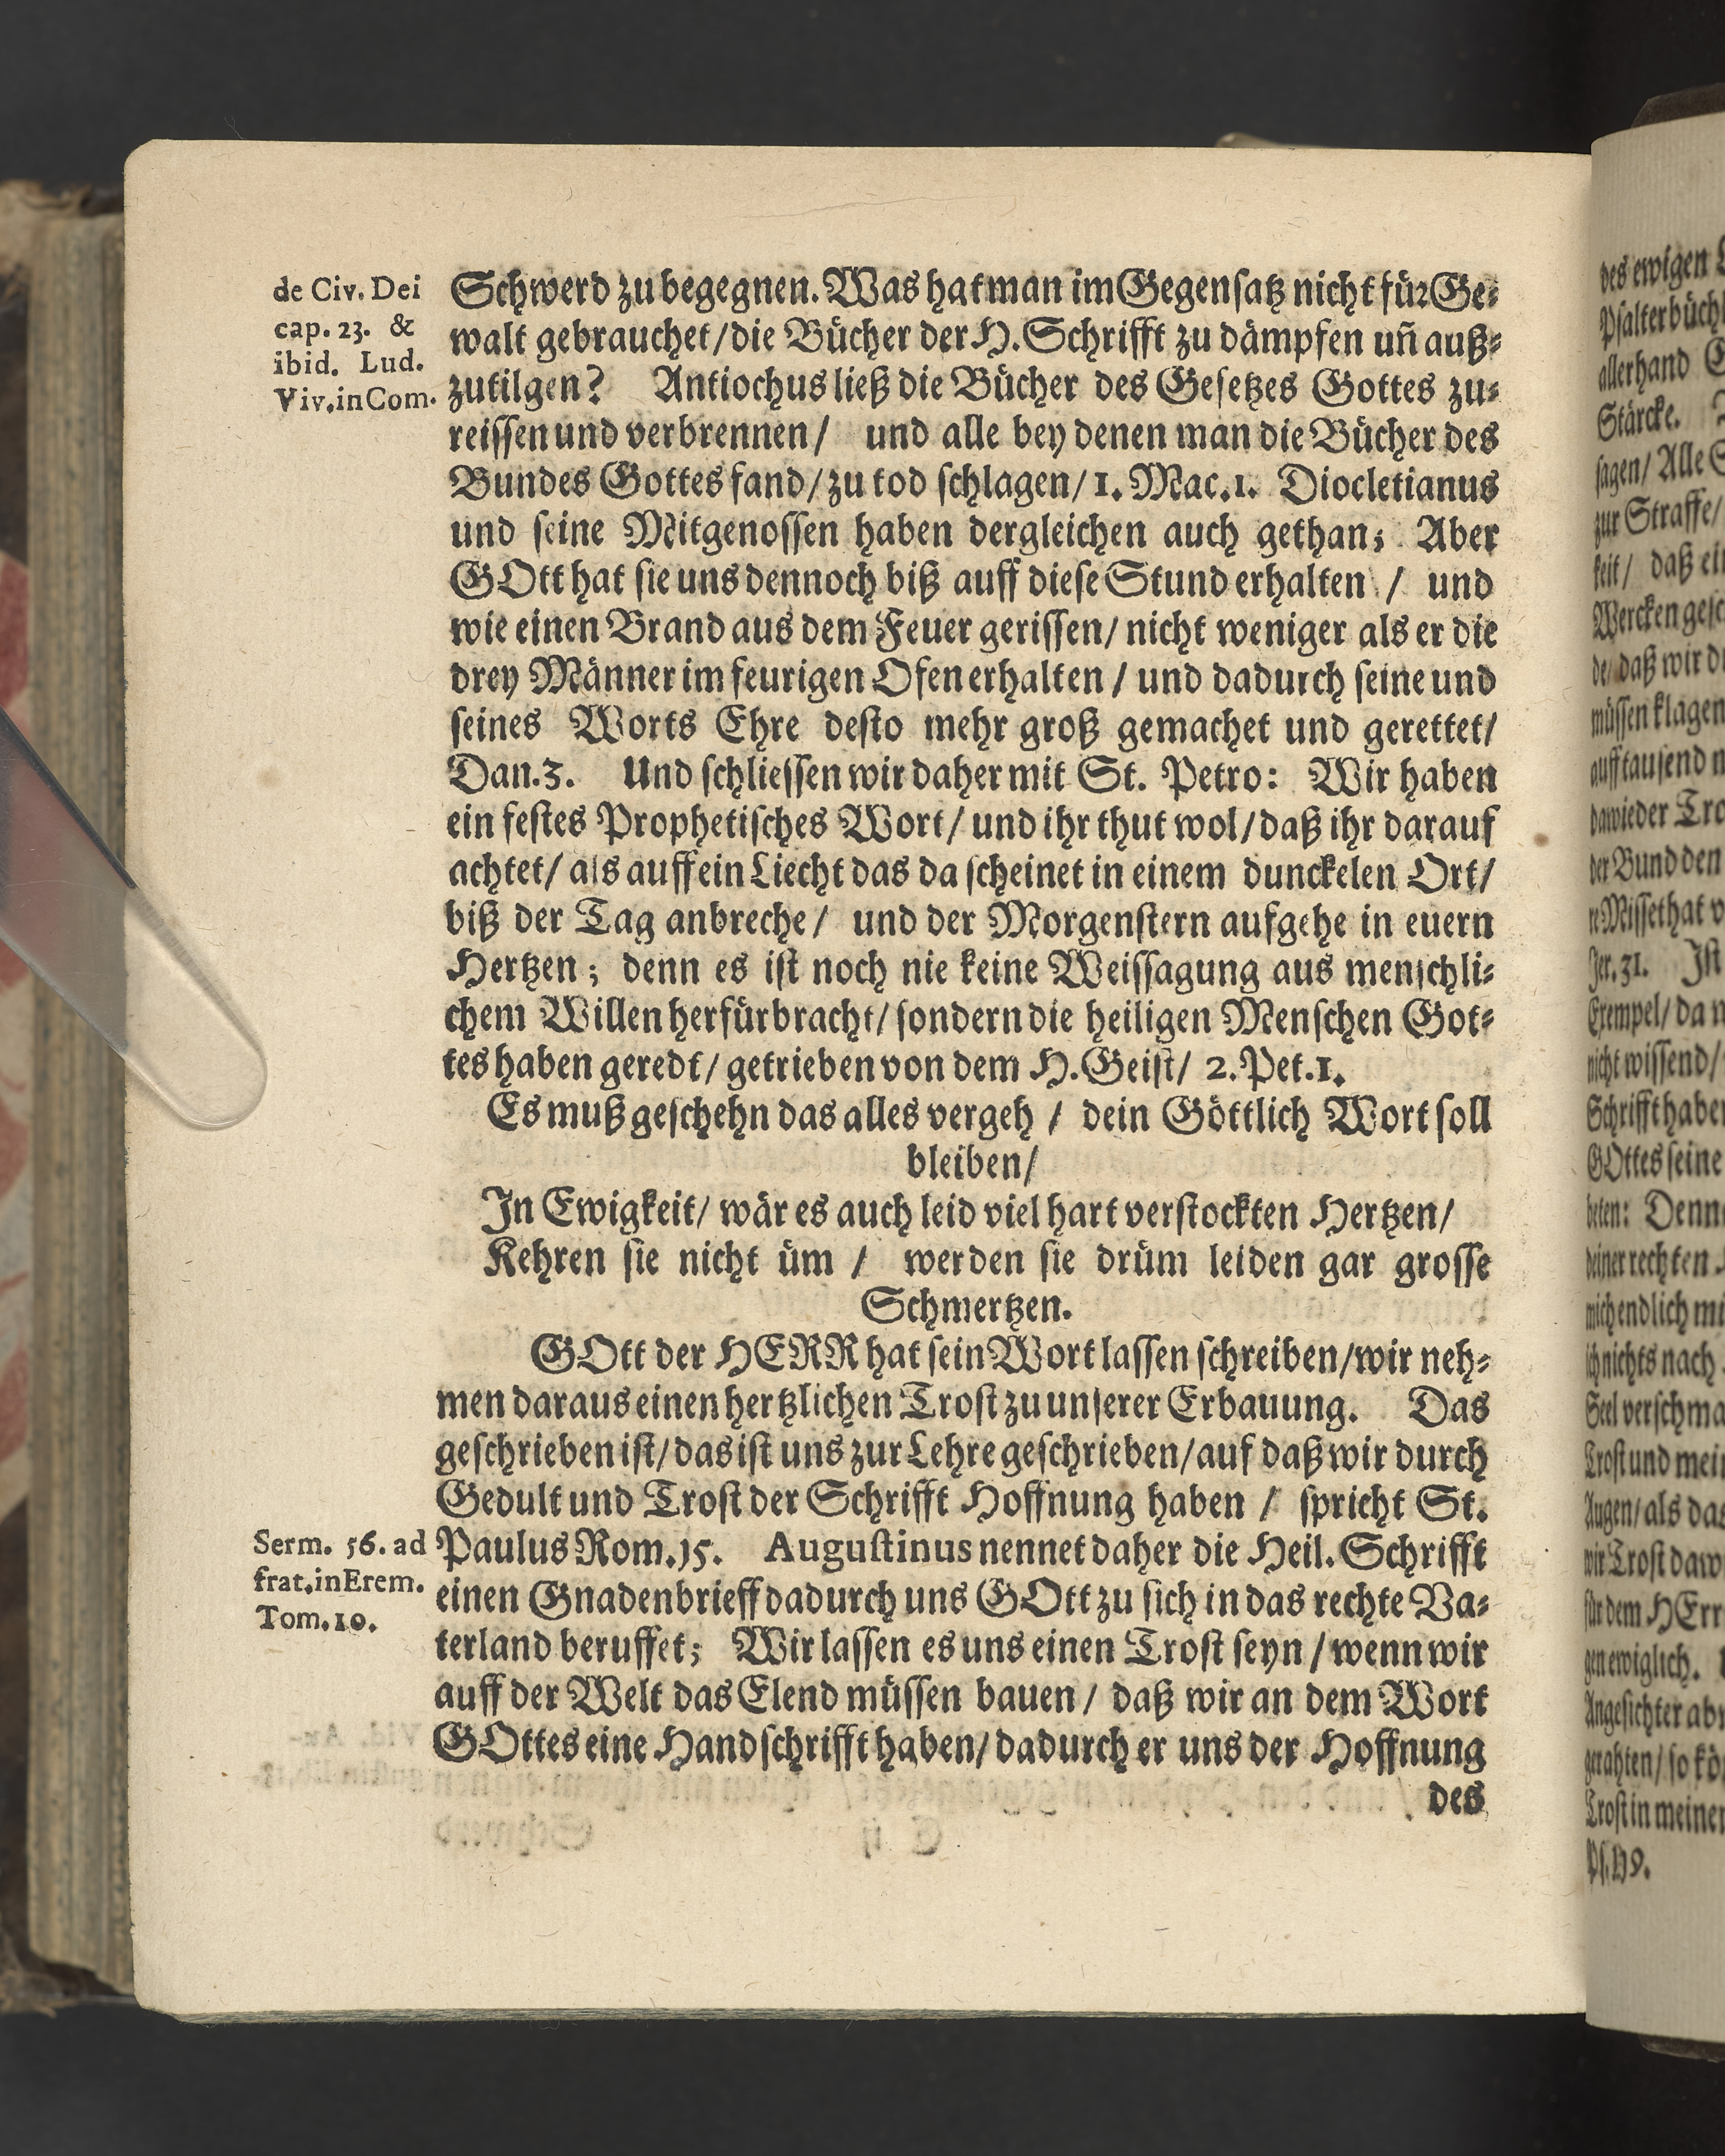 de Civ. Dei
cap. 23. &
ibid. Lud.
Viv. in Com.
Schwerd zu begegnen. Was hat man im Gegensatz nicht für Ge-
walt gebrauchet/die Bücher der H. Schrifft zu dämpfen uñ auß-
zutilgen? Antiochus ließ die Bücher des Gesetzes Gottes zu-
reissen und verbrennen/ und alle bey denen man die Bücher des
Bundes Gottes fand/zu tod schlagen/1. Mac.1. Diocletianus
und seine Mitgenossen haben dergleichen auch gethan; Aber
GOtt hat sie uns dennoch biß auff diese Stund erhalten / und
wie einen Brand aus dem Feuer gerissen/ nicht weniger als er die
drey Männer im feurigen Ofen erhalten / und dadurch seine und
seines Worts Ehre desto mehr groß gemachet und gerettet/
Dan.3. Und schliessen wir daher mit St. Petro: Wir haben
ein festes Prophetisches Wort/ und ihr thut wol/daß ihr darauf
achtet/ als auff ein Liecht das da scheinet in einem dunckelen Ort/
biß der Tag anbreche/ und der Morgenstern aufgehe in euern
Hertzen; denn es ist noch nie keine Weissagung aus menschli-
chem Willen herfürbracht/ sondern die heiligen Menschen Got-
tes haben geredt/ getrieben von dem H. Geist/ 2. Pet.1.
Es muß geschehn das alles vergeh / dein Göttlich Wort soll
bleiben/
In Ewigkeit/ wär es auch leid viel hart verstockten Hertzen/
Kehren sie nicht üm / werden sie drüm leiden gar grosse
Schmertzen.
GOtt der HERR hat sein Wort lassen schreiben/wir neh-
men daraus einen hertzlichen Trost zu unserer Erbauung. Das
geschrieben ist/das ist uns zur Lehre geschrieben/auf daß wir durch
Gedult und Trost der Schrifft Hoffnung haben / spricht St.
Serm. 56. ad
frat. in Erem.
Tom. 10.
Paulus Rom.15. Augustinus nennet daher die Heil. Schrifft
einen Gnadenbrieff dadurch uns GOtt zu sich in das rechte Va-
terland beruffet; Wir lassen es uns einen Trost seyn / wenn wir
auff der Welt das Elend müssen bauen / daß wir an dem Wort
GOttes eine Handschrifft haben/ dadurch er uns der Hoffnung
des
des ewigen
Psalterbüchl
allerhand
Stärcke.
sagen/ Alle
zur Straffe/
keit/ daß ein
Wercken gesc
de/ daß wir
müssen klagen
auff tausend
dawieder Tro
der Bund den
Missethat
Jer. 31. Ist
Exempel/ da
nicht wissend/
Schrifft haben
GOttes seine
beten: Denn
deiner rechten
mich endlich mi
ich nichts nach
Seel verschma
Trost und mein
Augen/ als das
wir Trost daw
für dem HErr
gen ewiglich.
Angesichter ab
gerahten/ so kö
Trost in meinen